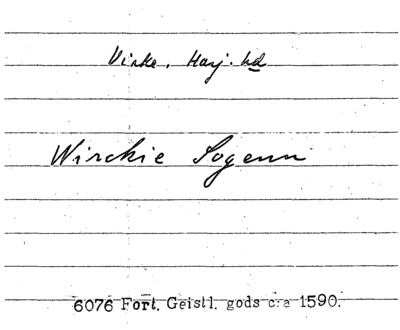 Virke. Harj. hd
Wirckie Sogenn
6076 Fort. Geistl. gods c:a 1590.